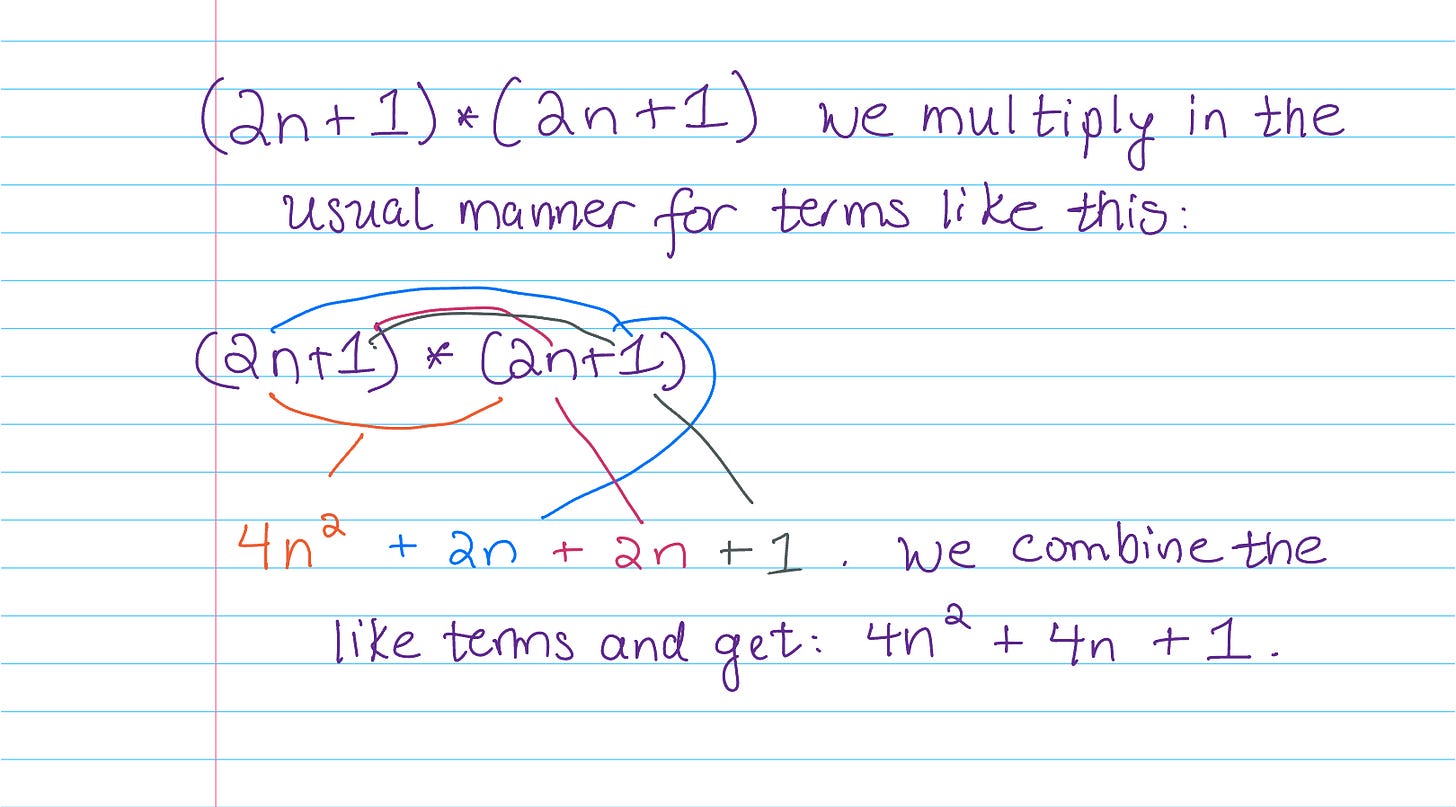 (2n+1)*(2n+1) we multiply in the
usual manner for terms like this:
(2n+1) * (2n+1)
4n² + 2n + 2n + 1 . We combine the
like terms and get: 4n² + 4n + 1.